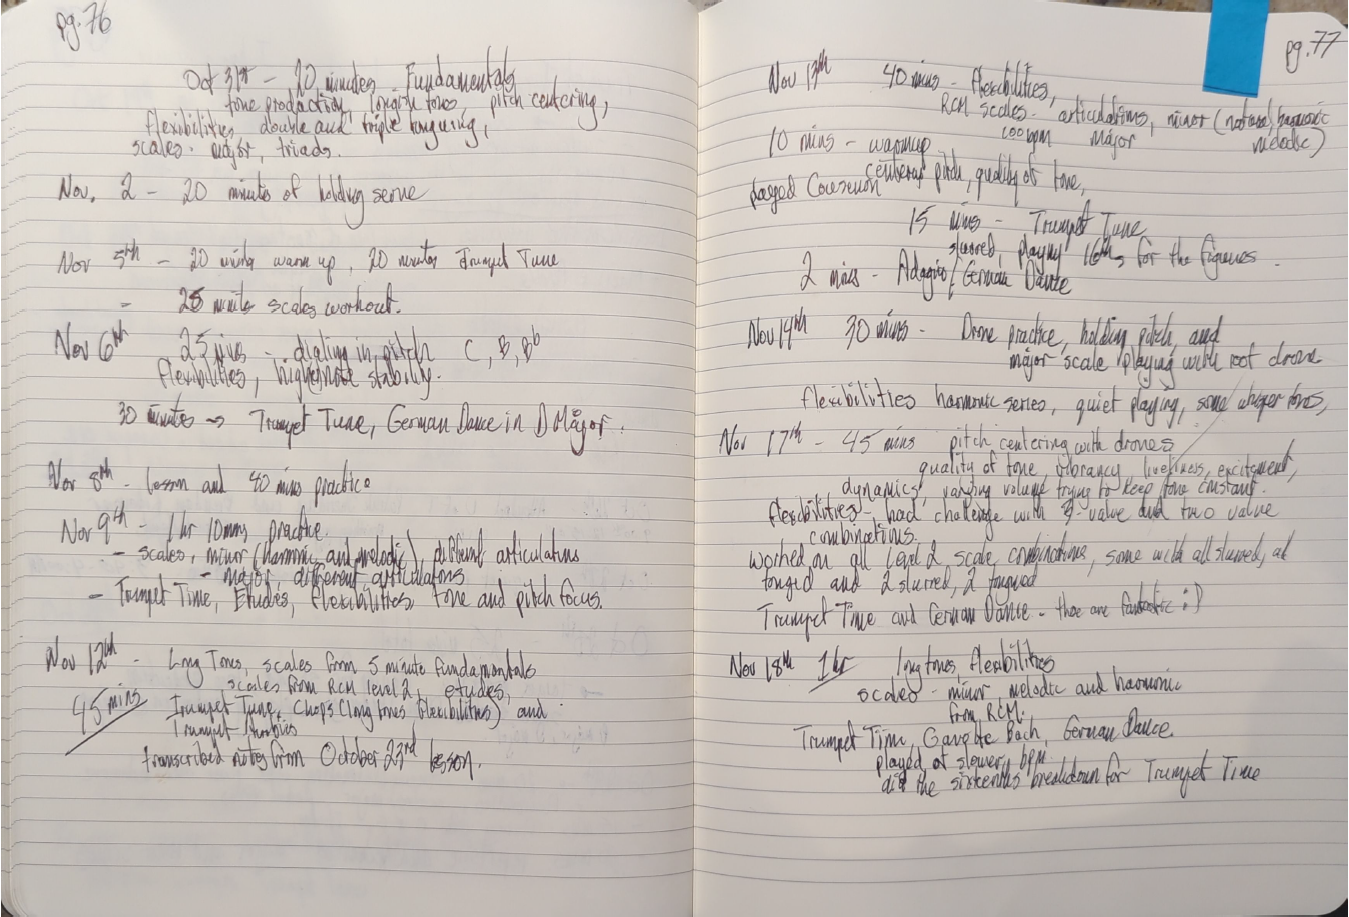 pg. 76
Oct 31st - 20 minutes Fundamentals
tone production, long tones, pitch centering,
flexibilities, double and triple tonguing,
scales. major, triads.
Nov. 2 - 20 minutes of holding
Nov 5th - 20 warm up, 20 minutes Trumpet Tune
- 25 minute scales workout.
Nov 6th 25 mins - dialing in pitch C, B, Bb
flexibilities, high note stability.
30 minutes → Trumpet Tune, German Dance in D Major.
Nov 8th - lesson and 40 mins practice
Nov 9th - 1 hr 10 mins practice.
- scales, minor (harmonic and melodic) different articulations
- major, different articulations
- Trumpet Time, Etudes, flexibilities, tone and pitch focus.
Nov 12th - Long Tones, scales from 5 minute fundamentals
45 mins scales from RCM level 2, etudes,
Trumpet Tune, Chops (long tones flexibilities) and
Trumpet
transcribed notes from October 23rd lesson.
pg. 77
Nov 13th 40 mins - flexibilities,
RCM scales. articulations, minor (natural, harmonic
100bpm major melodic)
10 mins - warmup
centered pitch, quality of tone,
played
15 mins - Trumpet Tune
slurred, playing 16ths for the figures.
2 mins - Adagio / German Dance
Nov 14th 30 mins - Drone practice, holding pitch, and
major scale playing with root drone
flexibilities harmonic series, quiet playing, some whisper tones,
Nov 17th - 45 mins pitch centering with drones
quality of tone, vibrancy, liveliness, excitement,
dynamics, varying volume trying to keep tone constant.
flexibilities - had challenge with value and two value
combinations.
worked on all level 2 scale combinations, some with all slurred, all
tongued and 2 slurred, 2 tongued
Trumpet Time and German Dance - those are fantastic :)
Nov 18th 1 hr long tones, flexibilities
scales - minor, melodic and harmonic
from RCM.
Trumpet Time, Gavotte Bach, German Dance.
played at slower bpm
did the sixteenths breakdown for Trumpet Time